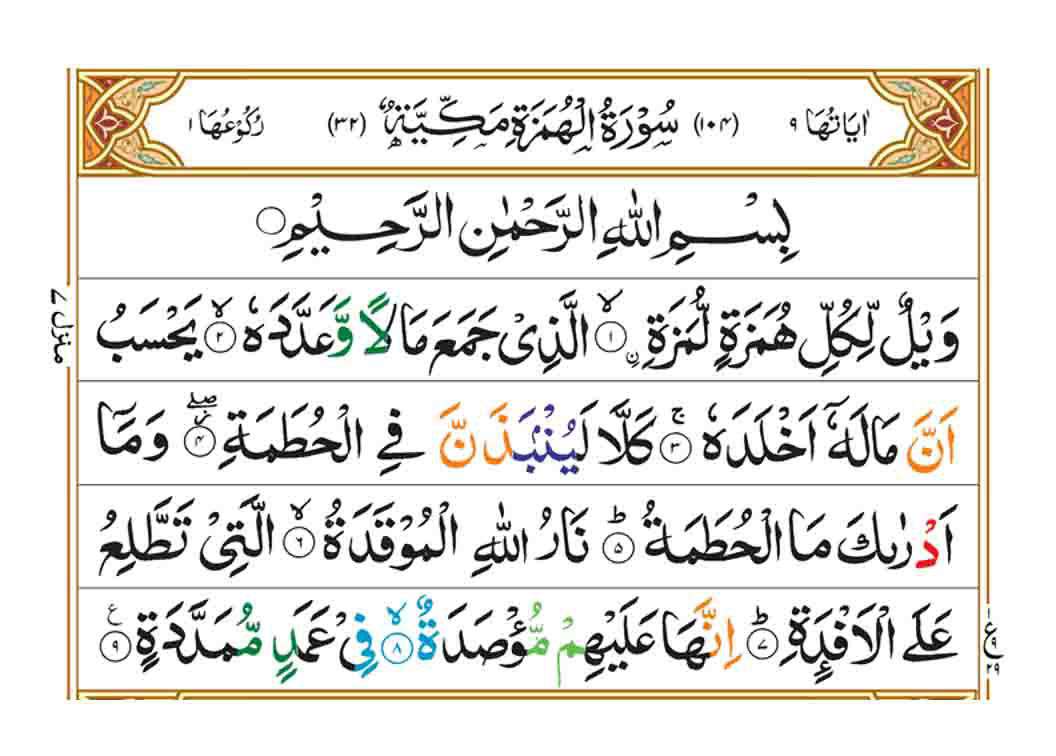 اٰيَاتُهَا ٩ (١٠٤) سُوْرَةُ الْهُمَزَةِ مَكِّيَّةٌ (٣٢) رُكُوْعُهَا ١
بِسْمِ اللّٰهِ الرَّحْمٰنِ الرَّحِيْمِ
وَيْلٌ لِّكُلِّ هُمَزَةٍ لُّمَزَةِ ۙ‏﴿١﴾ ۨالَّذِىْ جَمَعَ مَالًا وَّعَدَّدَهٗ ۙ‏﴿٢﴾ يَحْسَبُ
اَنَّ مَالَهٗۤ اَخْلَدَهٗ ۚ‏﴿٣﴾ كَلَّا لَيُنْۢبَذَنَّ فِى الْحُطَمَةِ ۖ‏﴿٤﴾ وَمَاۤ
اَدْرٰىكَ مَا الْحُطَمَةُ ؕ‏﴿٥﴾ نَارُ اللّٰهِ الْمُوْقَدَةُ ۙ‏﴿٦﴾ الَّتِىْ تَطَّلِعُ
عَلَى الْاَفْـِٕدَةِ ؕ‏﴿٧﴾ اِنَّهَا عَلَيْهِمْ مُّؤْصَدَةٌ ۙ‏﴿٨﴾ فِىْ عَمَدٍ مُّمَدَّدَةٍ ‏﴿٩﴾ ع
منزل ٧
ع
٩
٢٩